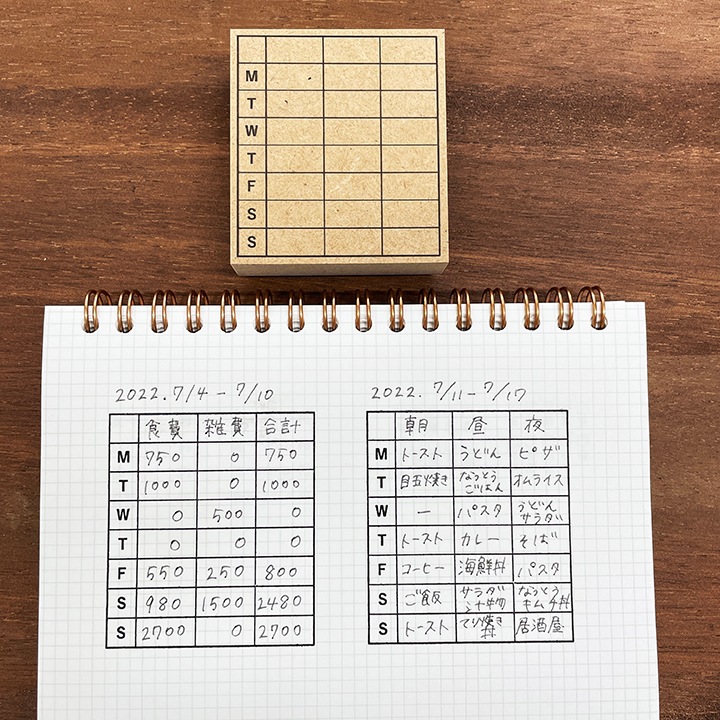 M
T
W
T
F
S
S
2022.7/4-7/10
食費 雑費 合計
M 750 0 750
T 1000 0 1000
W 0 500 0
T 0 0 0
F 550 250 800
S 980 1500 2480
S 2700 0 2700
2022.7/11-7/17
朝 昼 夜
M トースト うどん ピザ
T 目玉焼き なっとうごはん オムライス
W ー パスタ うどんサラダ
T トースト カレー そば
F コーヒー 海鮮丼 パスタ
S ご飯 サラダ汁物 なっとうキムチ丼
S トースト てり焼き丼 居酒屋